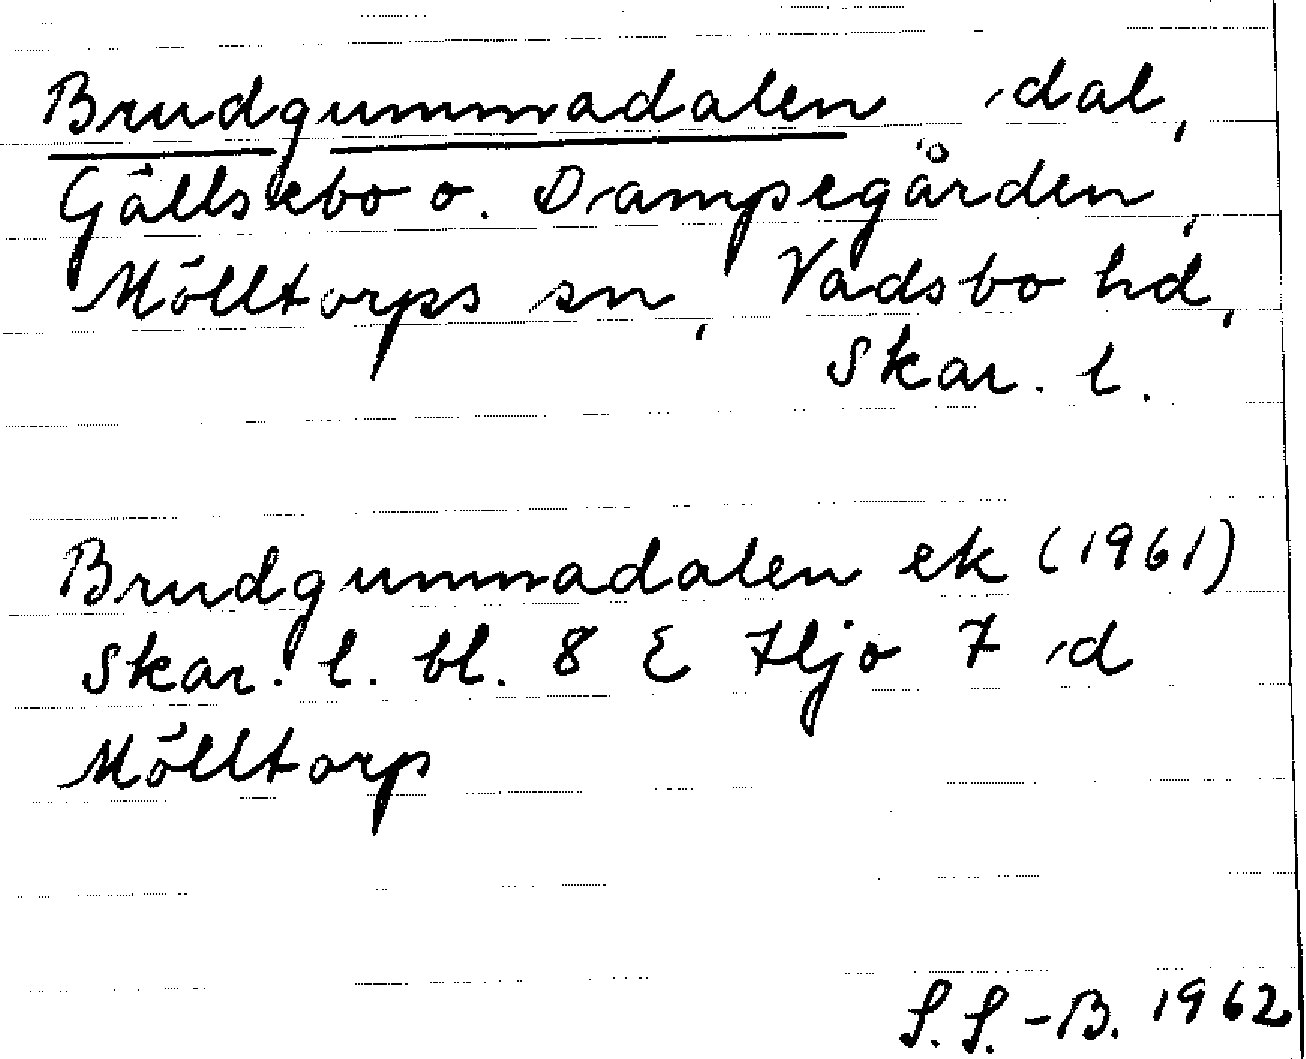 Brudgummadalen, dal,
Gällsebo o. Dampegården,
Mölltorps sn, Vadsbo hd,
Skar. l.
Brudgummadalen ek (1961)
Skar. l. bl. 8 E Hjo 7 d
Mölltorp
S.S.-B. 1962